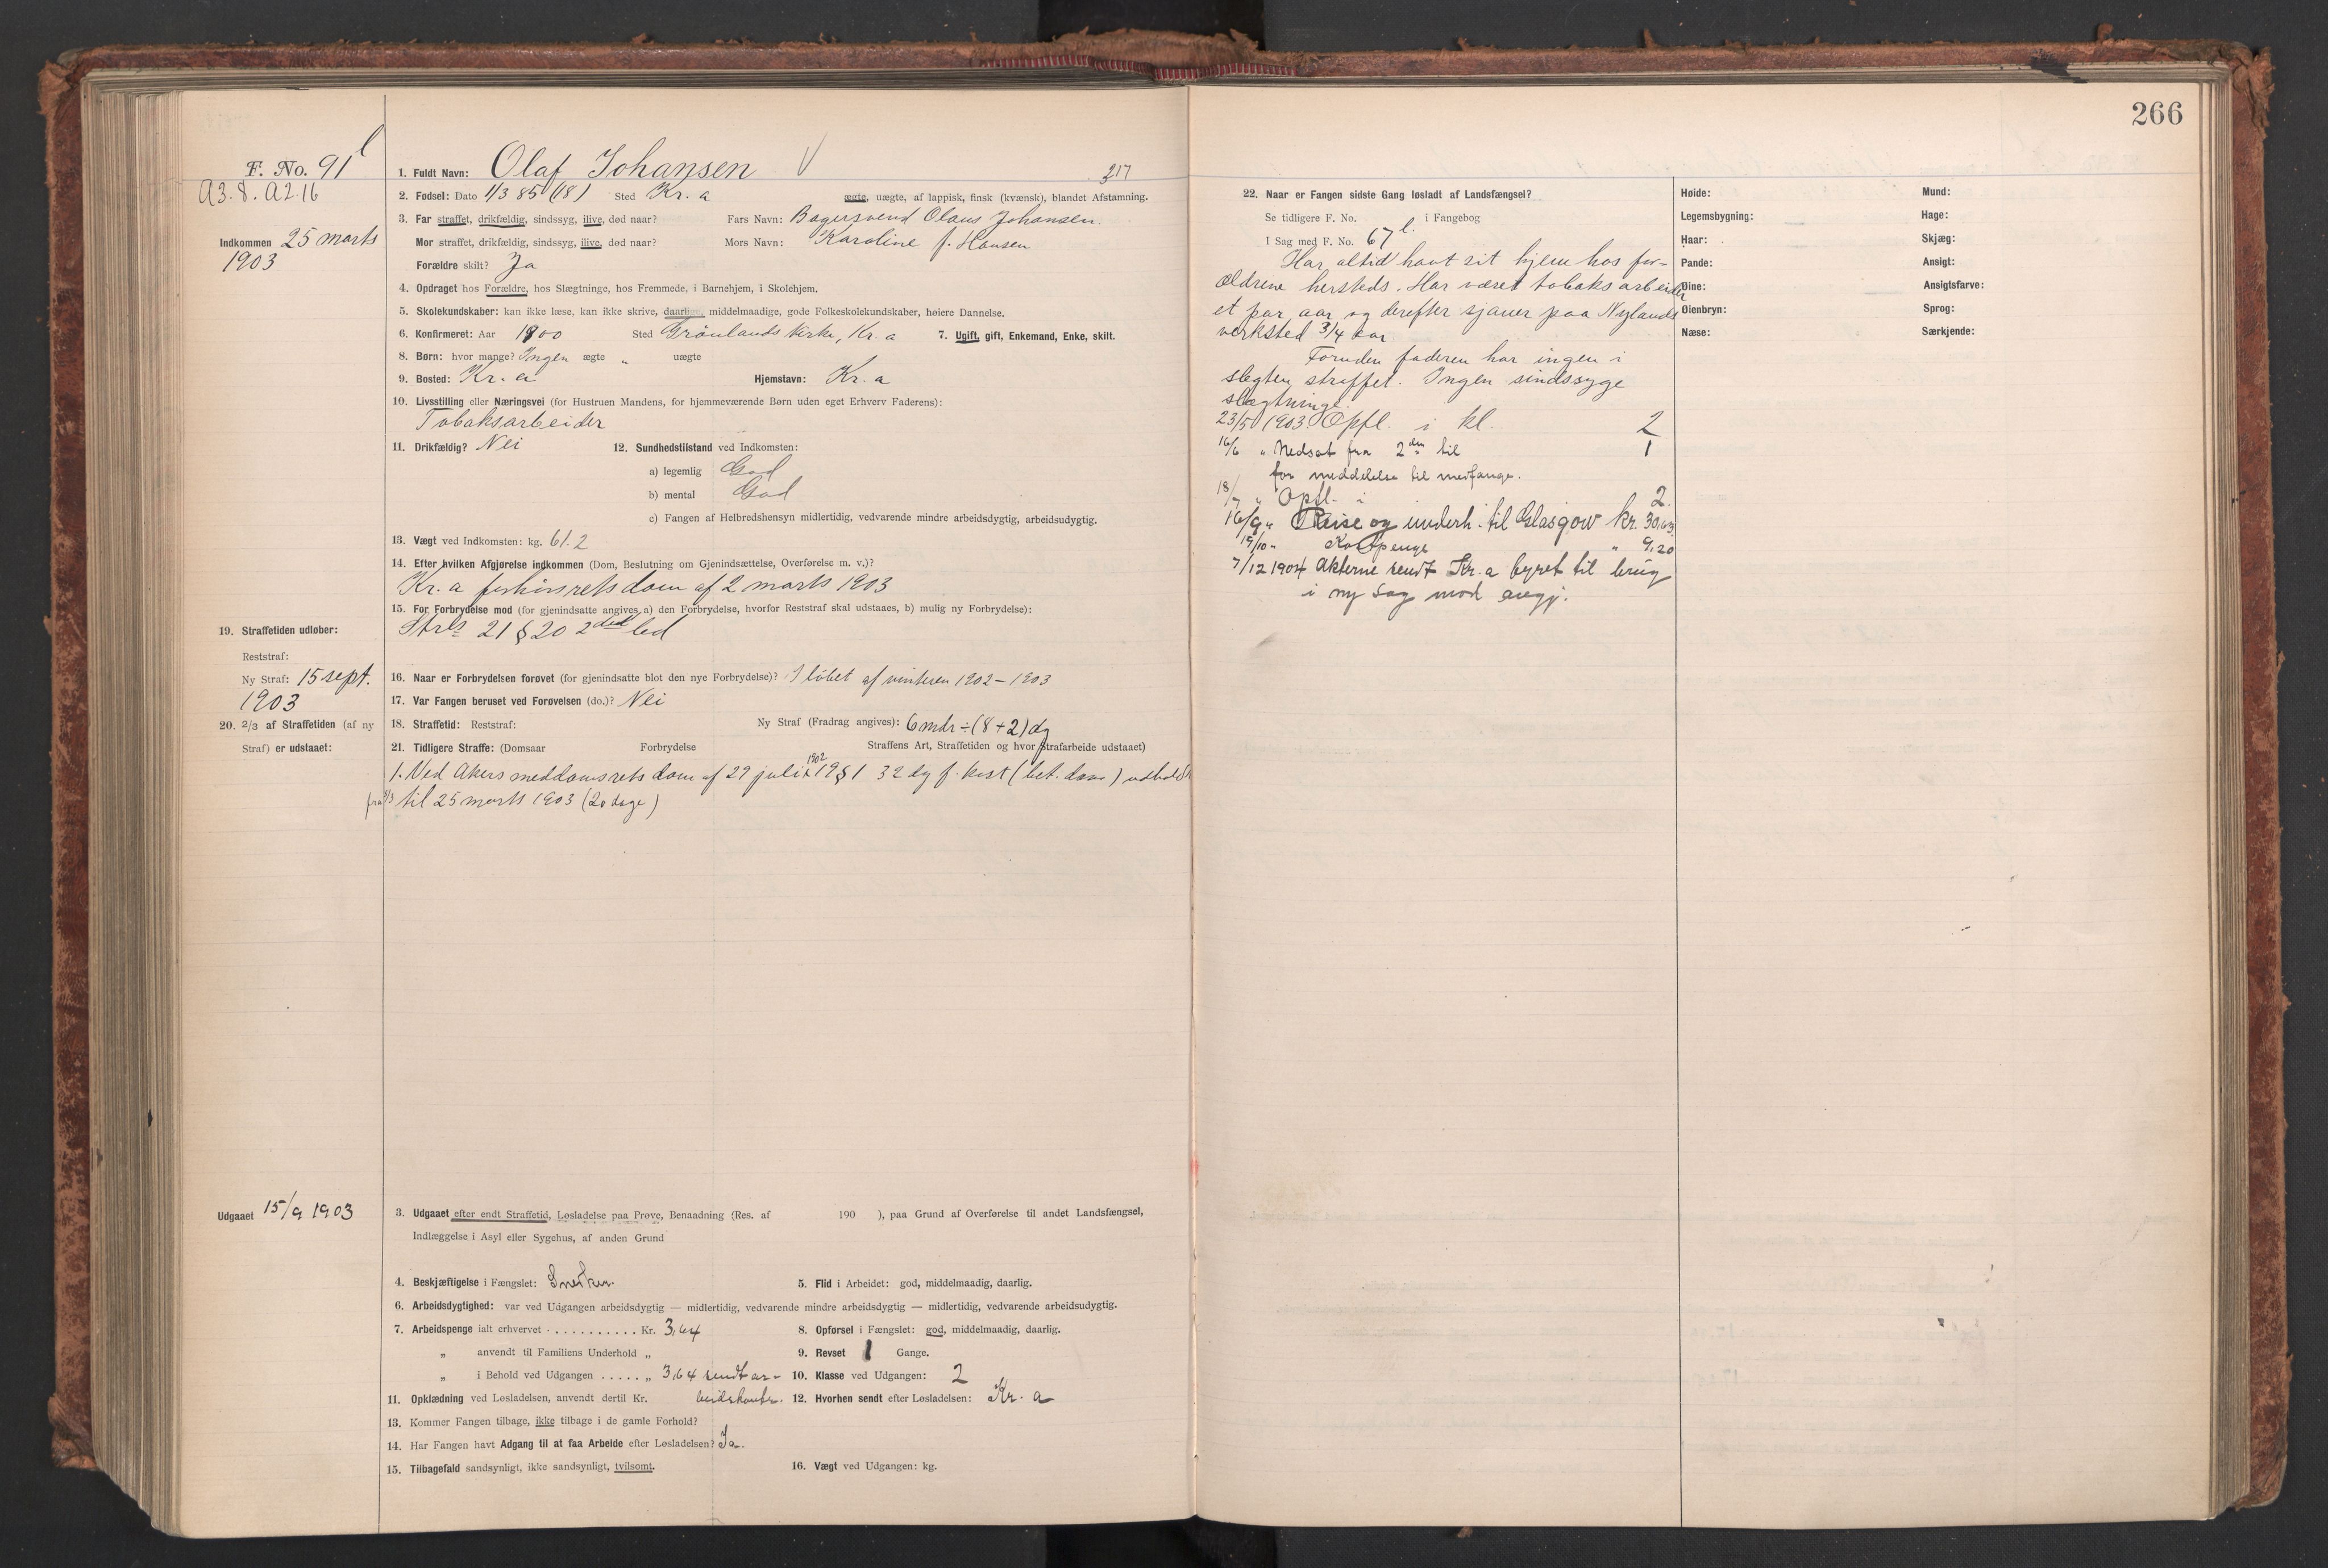 266
F. No. 91 l
A3.8. A2.16
Indkommen 25 marts
1903
1. Fuldt Navn: Olaf Johansen V 217
2. Fødsel: Dato 1/3 85 (18) Sted Kr.a ægte, uægte, af lappisk, finsk (kvænsk), blandet Afstamning.
3. Far straffet, drikfældig, sindssyg, ilive, død naar? Fars Navn: Bagersvend Olaus Johansen.
Mor straffet, drikfældig, sindssyg, ilive, død naar? Mors Navn: Karoline f. Hansen
Forældre skilt? Ja
4. Opdraget hos Forældre, hos Slægtninge, hos Fremmede, i Barnehjem, i Skolehjem.
5. Skolekundskaber: kan ikke læse, kan ikke skrive, daarlige, middelmaadige, gode Folkeskolekundskaber, høiere Dannelse.
6. Konfirmeret: Aar 1900 Sted Grönlands Kirke, Kr.a 7. Ugift, gift, Enkemand, Enke, skilt.
8. Børn: hvor mange? Ingen ægte „ uægte
9. Bosted: Kr.a Hjemstavn: Kr.a
10. Livsstilling eller Næringsvei (for Hustruen Mandens, for hjemmeværende Børn uden eget Erhverv Faderens):
Tobaksarbeider
11. Drikfældig? Nei 12. Sundhedstilstand ved Indkomsten:
a) legemlig God
b) mental God
c) Fangen af Helbredshensyn midlertidig, vedvarende mindre arbeidsdygtig, arbeidsudygtig.
13. Vægt ved Indkomsten: kg. 61.2
14. Efter hvilken Afgjørelse indkommen (Dom, Beslutning om Gjenindsættelse, Overførelse m. v.)?
Kr.a forhörsrets dom af 2 marts 1903
15. For Forbrydelse mod (for gjenindsatte angives a) den Forbrydelse, hvorfor Reststraf skal udstaaes, b) mulig ny Forbrydelse):
Strls 21 § 20 2det led
19. Straffetiden udløber:
Reststraf:
Ny Straf: 15 sept.
1903
20. 2/3 af Straffetiden (af ny
Straf) er udstaaet:
16. Naar er Forbrydelsen forøvet (for gjenindsatte blot den nye Forbrydelse)? I löbet af vinteren 1902-1903
17. Var Fangen beruset ved Forøvelsen (do.)? Nei
18. Straffetid: Reststraf: Ny Straf (Fradrag angives): 6 mdr ÷ (8 + 2) dg
21. Tidligere Straffe: (Domsaar Forbrydelse Straffens Art, Straffetiden og hvor Strafarbeide udstaaet)
1. Ved Akers meddomsrets dom af 29 juli 1902 19 § 1 32 dg f. kost (bet. dom) udholdt
fra 5/3 til 25 marts 1903 (20 dage)
Udgaaet 15/9 1903
3. Udgaaet efter endt Straffetid, Løsladelse paa Prøve, Benaadning (Res. af 190 ), paa Grund af Overførelse til andet Landsfængsel,
Indlæggelse i Asyl eller Sygehus, af anden Grund
4. Beskjæftigelse i Fængslet: Snekker 5. Flid i Arbeidet: god, middelmaadig, daarlig.
6. Arbeidsdygtighed: var ved Udgangen arbeidsdygtig — midlertidig, vedvarende mindre arbeidsdygtig — midlertidig, vedvarende arbeidsudygtig.
7. Arbeidspenge ialt erhvervet .......... Kr. 3,64 8. Opførsel i Fængslet: god, middelmaadig, daarlig.
„ anvendt til Familiens Underhold „ 9. Revset 1 Gange.
„ i Behold ved Udgangen ..... „ 3,64 sendt ar- 10. Klasse ved Udgangen: 2
11. Opklædning ved Løsladelsen, anvendt dertil Kr. beidskontr. 12. Hvorhen sendt efter Løsladelsen: Kr.a
13. Kommer Fangen tilbage, ikke tilbage i de gamle Forhold?
14. Har Fangen havt Adgang til at faa Arbeide efter Løsladelsen? Ja.
15. Tilbagefald sandsynligt, ikke sandsynligt, tvilsomt. 16. Vægt ved Udgangen: kg.
22. Naar er Fangen sidste Gang løsladt af Landsfængsel?
Se tidligere F. No. i Fangebog
I Sag med F. No. 67 l.
Har altid havt sit hjem hos for-
ældrene hersteds. Har været tobaksarbeider
et par aar og derefter sjauer paa Nylands
verksted 3/4 aar.
Foruden faderen har ingen i
slegten straffet. Ingen sindssyge
slægtninge.
23/5 1903. Opfl. i kl. 2
16/6 „ Nedsat fra 2den til 1
for meddelelse til medfange.
18/7 „ Opfl. i 2.
16/9 „ Reise og underh. til Glasgow kr. 30,63
19/10 „ Kostpenge „ 9.20
7/12 1904 Akterne sendt Kr.a byret til brug
i ny sag mod angj.
Høide:
Legemsbygning:
Haar:
Pande:
Øine:
Øienbryn:
Næse:
Mund:
Hage:
Skjæg:
Ansigt:
Ansigtsfarve:
Sprog:
Særkjende: